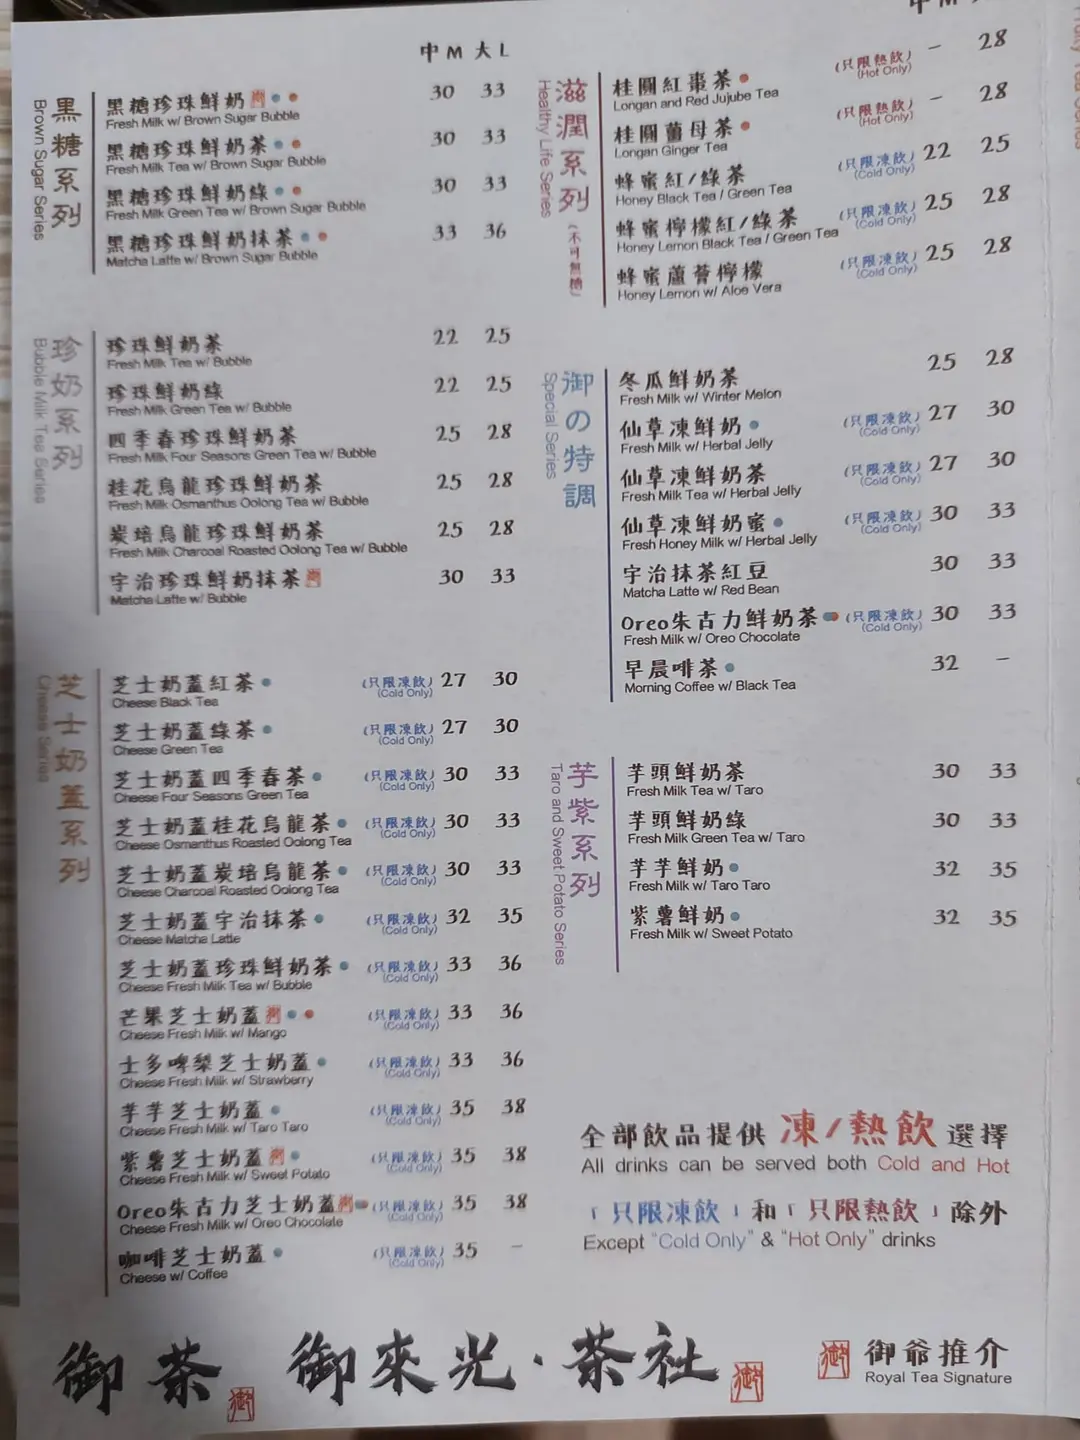 中M 大L
黑糖系列
Brown Sugar Series
黑糖珍珠鮮奶 30 33
Fresh Milk w/ Brown Sugar Bubble
黑糖珍珠鮮奶茶 30 33
Fresh Milk Tea w/ Brown Sugar Bubble
黑糖珍珠鮮奶綠 30 33
Fresh Milk Green Tea w/ Brown Sugar Bubble
黑糖珍珠鮮奶抹茶 33 36
Matcha Latte w/ Brown Sugar Bubble
珍奶系列
Bubble Milk Tea Series
珍珠鮮奶茶 22 25
Fresh Milk Tea w/ Bubble
珍珠鮮奶綠 22 25
Fresh Milk Green Tea w/ Bubble
四季春珍珠鮮奶茶 25 28
Fresh Milk Four Seasons Green Tea w/ Bubble
桂花烏龍珍珠鮮奶茶 25 28
Fresh Milk Osmanthus Oolong Tea w/ Bubble
炭培烏龍珍珠鮮奶茶 25 28
Fresh Milk Charcoal Roasted Oolong Tea w/ Bubble
宇治珍珠鮮奶抹茶 30 33
Matcha Latte w/ Bubble
芝士奶蓋系列
Cheese Series
芝士奶蓋紅茶 (只限凍飲) 27 30
Cheese Black Tea (Cold Only)
芝士奶蓋綠茶 (只限凍飲) 27 30
Cheese Green Tea (Cold Only)
芝士奶蓋四季春茶 (只限凍飲) 30 33
Cheese Four Seasons Green Tea (Cold Only)
芝士奶蓋桂花烏龍茶 (只限凍飲) 30 33
Cheese Osmanthus Roasted Oolong Tea (Cold Only)
芝士奶蓋炭培烏龍茶 (只限凍飲) 30 33
Cheese Charcoal Roasted Oolong Tea (Cold Only)
芝士奶蓋宇治抹茶 (只限凍飲) 32 35
Cheese Matcha Latte (Cold Only)
芝士奶蓋珍珠鮮奶茶 (只限凍飲) 33 36
Cheese Fresh Milk Tea w/ Bubble (Cold Only)
芒果芝士奶蓋 (只限凍飲) 33 36
Cheese Fresh Milk w/ Mango (Cold Only)
士多啤梨芝士奶蓋 (只限凍飲) 33 36
Cheese Fresh Milk w/ Strawberry (Cold Only)
芋芋芝士奶蓋 (只限凍飲) 35 38
Cheese Fresh Milk w/ Taro Taro (Cold Only)
紫薯芝士奶蓋 (只限凍飲) 35 38
Cheese Fresh Milk w/ Sweet Potato (Cold Only)
Oreo朱古力芝士奶蓋 (只限凍飲) 35 38
Cheese Fresh Milk w/ Oreo Chocolate (Cold Only)
咖啡芝士奶蓋 (只限凍飲) 35 –
Cheese w/ Coffee (Cold Only)
滋潤系列 (不可無糖)
Healthy Life Series
桂圓紅棗茶 (只限熱飲) – 28
Longan and Red Jujube Tea (Hot Only)
桂圓薑母茶 (只限熱飲) – 28
Longan Ginger Tea (Hot Only)
蜂蜜紅/綠茶 (只限凍飲) 22 25
Honey Black Tea / Green Tea (Cold Only)
蜂蜜檸檬紅/綠茶 (只限凍飲) 25 28
Honey Lemon Black Tea / Green Tea (Cold Only)
蜂蜜蘆薈檸檬 (只限凍飲) 25 28
Honey Lemon w/ Aloe Vera (Cold Only)
御の特調
Special Series
冬瓜鮮奶茶 25 28
Fresh Milk w/ Winter Melon
仙草凍鮮奶 (只限凍飲) 27 30
Fresh Milk w/ Herbal Jelly (Cold Only)
仙草凍鮮奶茶 (只限凍飲) 27 30
Fresh Milk Tea w/ Herbal Jelly (Cold Only)
仙草凍鮮奶蜜 (只限凍飲) 30 33
Fresh Honey Milk w/ Herbal Jelly (Cold Only)
宇治抹茶紅豆 30 33
Matcha Latte w/ Red Bean
Oreo朱古力鮮奶茶 (只限凍飲) 30 33
Fresh Milk w/ Oreo Chocolate (Cold Only)
早晨啡茶 32 –
Morning Coffee w/ Black Tea
芋紫系列
Taro and Sweet Potato Series
芋頭鮮奶茶 30 33
Fresh Milk Tea w/ Taro
芋頭鮮奶綠 30 33
Fresh Milk Green Tea w/ Taro
芋芋鮮奶 32 35
Fresh Milk w/ Taro Taro
紫薯鮮奶 32 35
Fresh Milk w/ Sweet Potato
全部飲品提供 凍/熱飲 選擇
All drinks can be served both Cold and Hot
「只限凍飲」和「只限熱飲」除外
Except "Cold Only" & "Hot Only" drinks
御茶 御來光·茶社
御爺推介
Royal Tea Signature